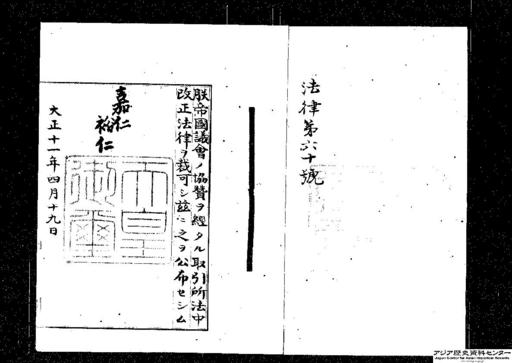 法律第六十號
朕帝國議會ノ協贊ヲ經タル取引所法中
改正法律ヲ裁可シ茲ニ之ヲ公布セシム
嘉仁
裕仁
天皇
御璽
大正十一年四月十九日
アジア歴史資料センター
Japan Center for Asian Historical Records